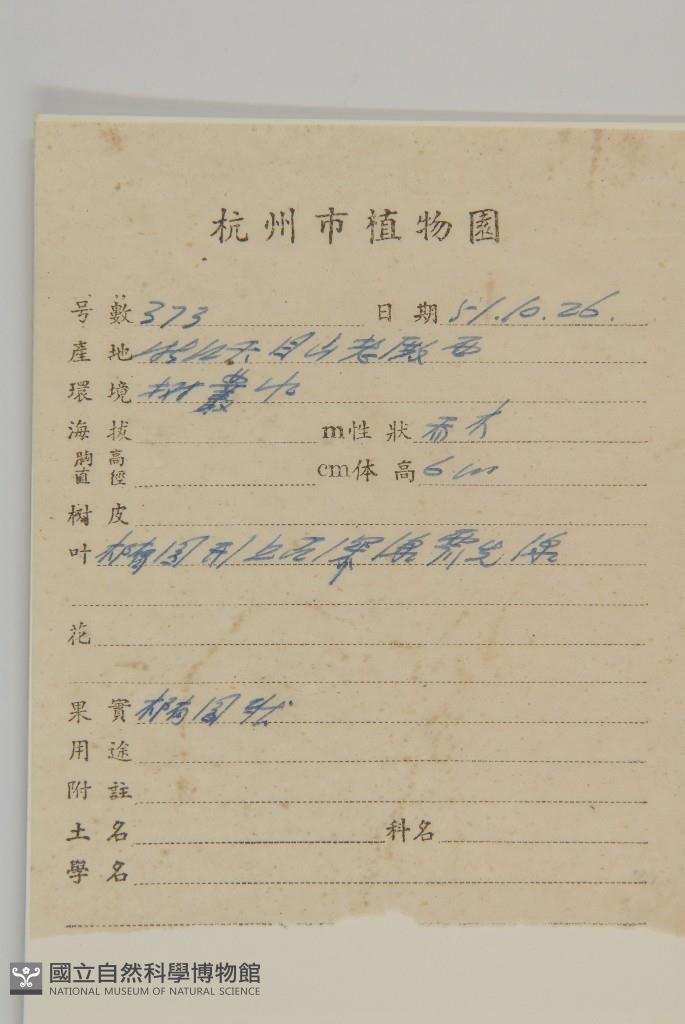 杭州市植物園
号數 373 日期 51.10.26.
產地 天目山老殿
環境 樹叢中
海拔 m性狀 乔木
胸高直徑 cm体高 6 m
树皮
叶 橢囼形上面深 
花
果實 橢囼状
用途
附註
土名 科名
學名
國立自然科學博物館
NATIONAL MUSEUM OF NATURAL SCIENCE